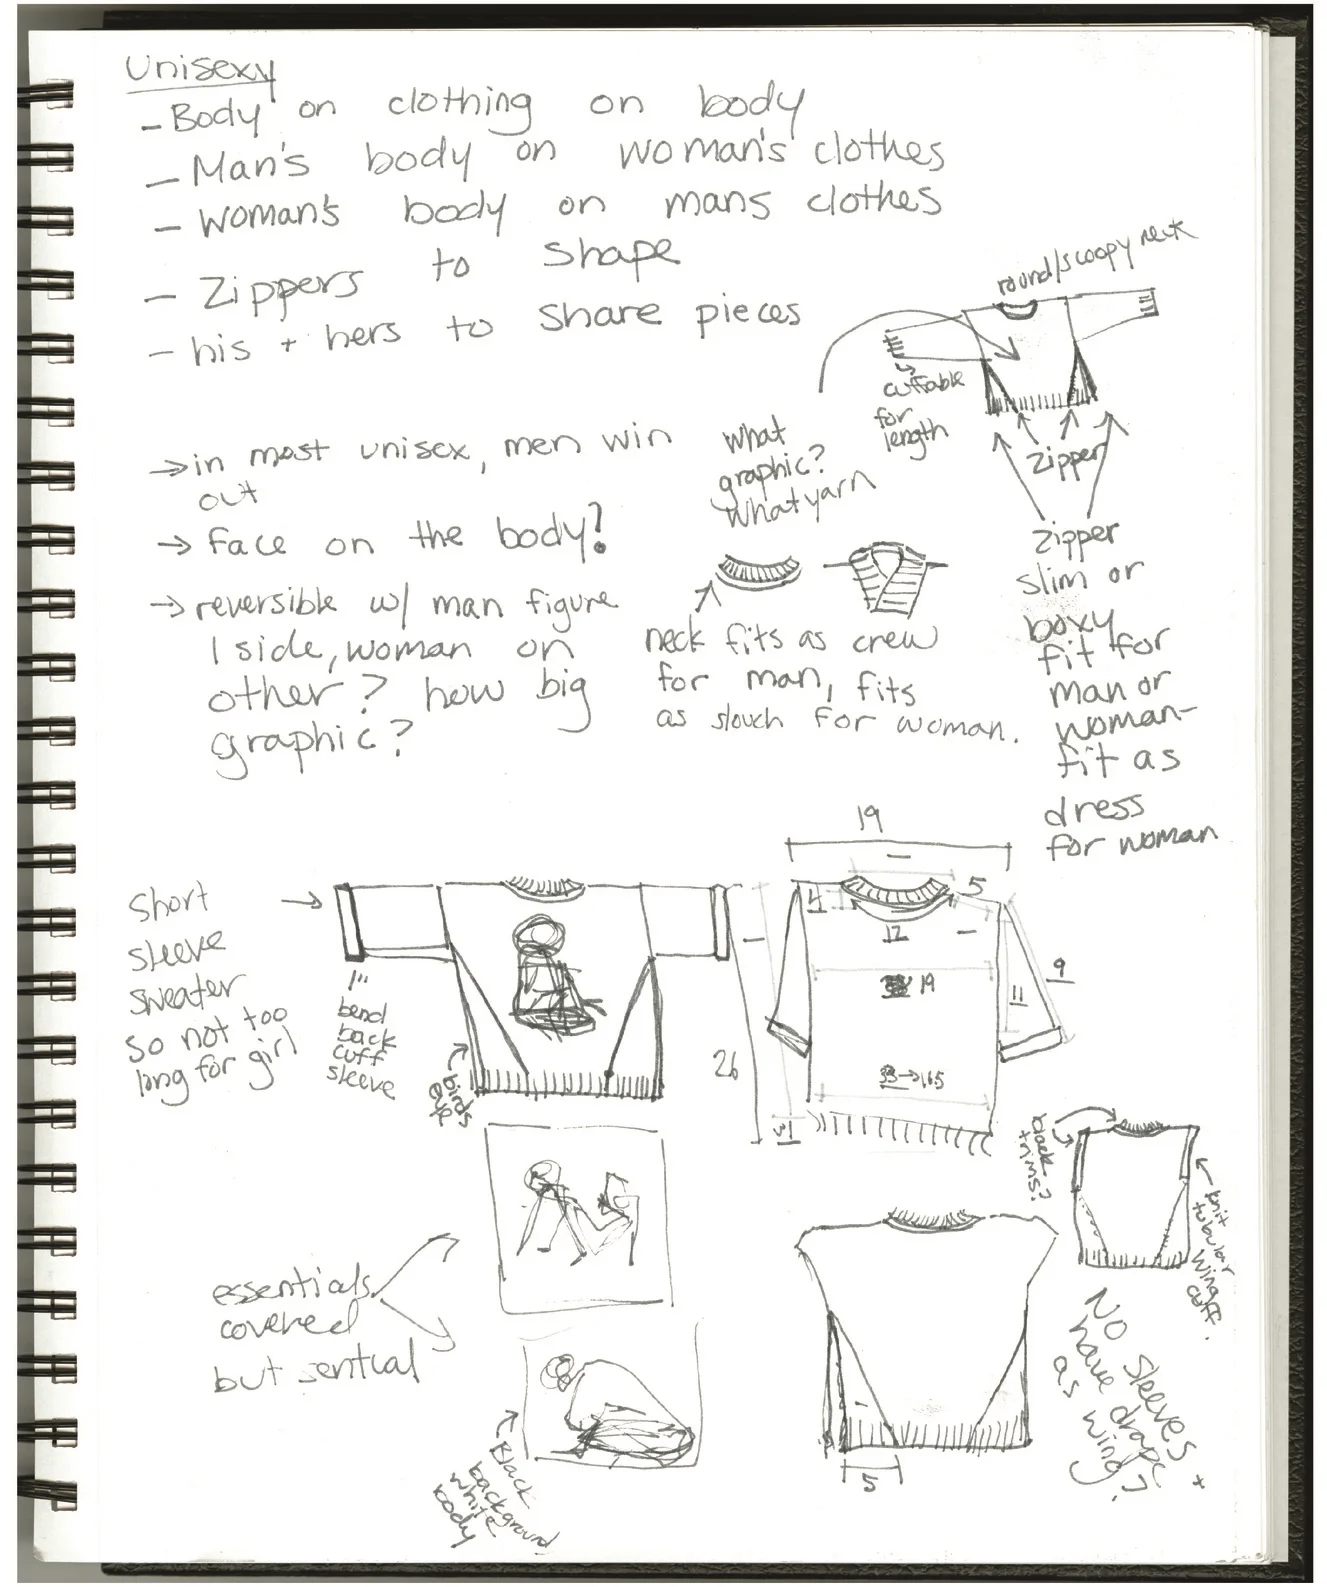 Unisexy
- Body on clothing on body
- Man's body on woman's clothes
- Woman's body on mans clothes
- Zippers to shape
- his + hers to share pieces
round/scoopy neck
cuffable
for
length
zipper
→ in most unisex, men win
out
→ face on the body?!
→ reversible w/ man figure
1 side, woman on
other? how big
graphic?
what
graphic?
what yarn
neck fits as crew
for man, fits
as slouch for woman.
zipper
slim or
boxy
fit for
man or
woman-
fit as
dress
for woman
short
sleeve
sweater
so not too
long for girl
1"
bend
back
cuff
sleeve
19
5
4
12
19
11
9
26
33→16.5
black
trims?
knit
tubular
wing
cuff.
essentials
covered
but
Black
background
white
body
5
No sleeves +
have drape
as wing?